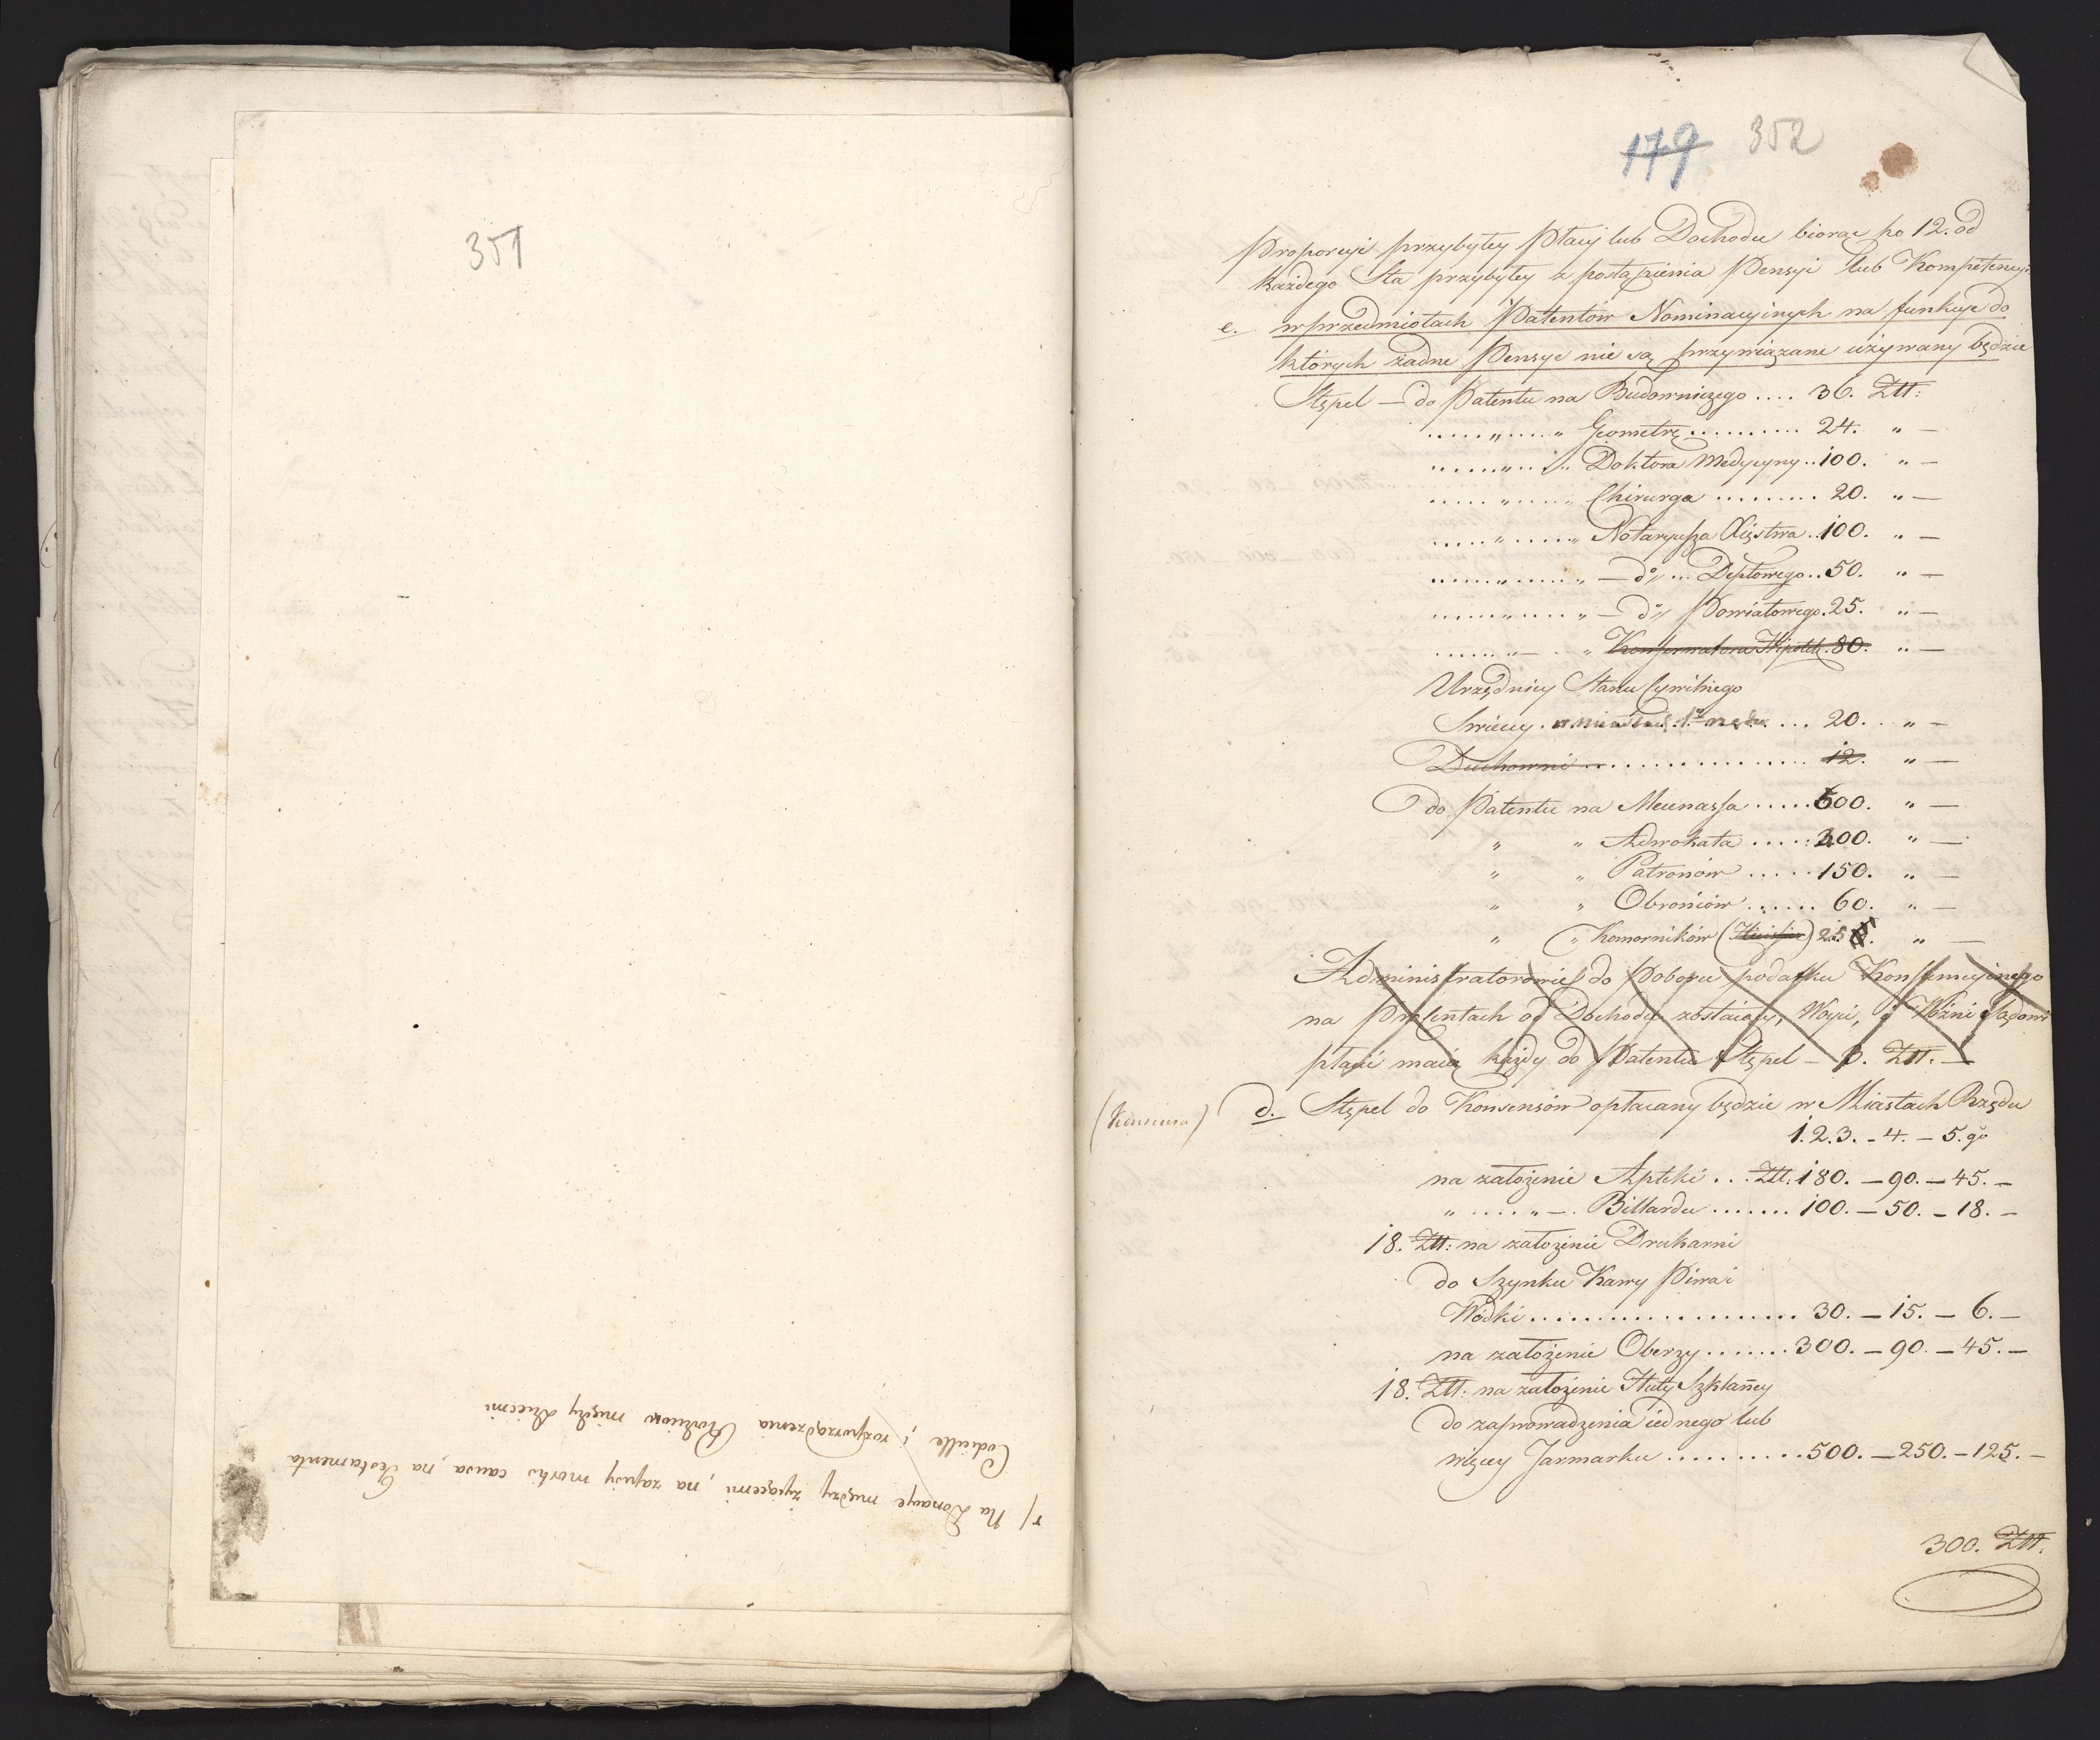 351
r/ Na Donacye między żyiącemi, na zapisy mortis causa, na Testamenta
Codicille, i rozporządzenia Rodziców między dziećmi
179 352
Proporcyi przybyłey Płacy lub Dochodu biorąc po 12. od
każdego Sta przybyłey z postąpienia Pensyi lub Kompetencyi
c. w przedmiotach Patentów Nominacyinych na funkcye do
których żadne Pensye nie są przywiązane używany będzie
Stępel — do Patentu na Budowniczego .... 36. Złł:
..... " ..... " Geometrę .......... 24. " —
..... " ..... " Doktora Medycyny .. 100. " —
..... " ..... " Chirurga ......... 20. " —
..... " ..... " Notaryusza Xięstwa .. 100. " —
..... " ..... " — do " ... Deptowego .. 50. " —
..... " ..... " — do " Powiatowego. 25. " —
..... " — . " Konserwatora Hipotek. 80. " —
Urzędnicy Stanu Cywilnego
Swieccy . w miastach 1o rzędu ... 20. " —
Duchowni .................. 12. " —
do Patentu na Mecenassa ..... 600. " —
" " Adwokata ..... 200. " —
" " Patronów ..... 150. " —
" " Obrońców ...... 60. " —
" " Komorników (Huissier) 25. " —
Administratorowie do Poboru podatku Konsumcyinego
na Procentach od Dochodu zostaiący, Woyci, i Woźni Sądowi
płacić maią każdy do Patentu Stępel — 6. Złł. —
(Konsensa) d. Stępel do Konsensów opłacany będzie w Miastach Rzędu
1. 2. 3. - 4. - 5. go
na założenie Apteki ... Złł. 180. — 90. — 45. —
" ..... " — . Billardu ....... 100. — 50. — 18. —
18. Złł: na założenie Drukarni
do Szynku Kawy Piwa i
Wódki .................... 30. — 15. — 6. —
na założenie Oberzy ....... 300. — 90. — 45. —
18. Złł: na założenie Huty Szklanney
do zaprowadzenia iednego lub
więcey Jarmarku .......... 500. — 250. — 125. —
300. Złł.